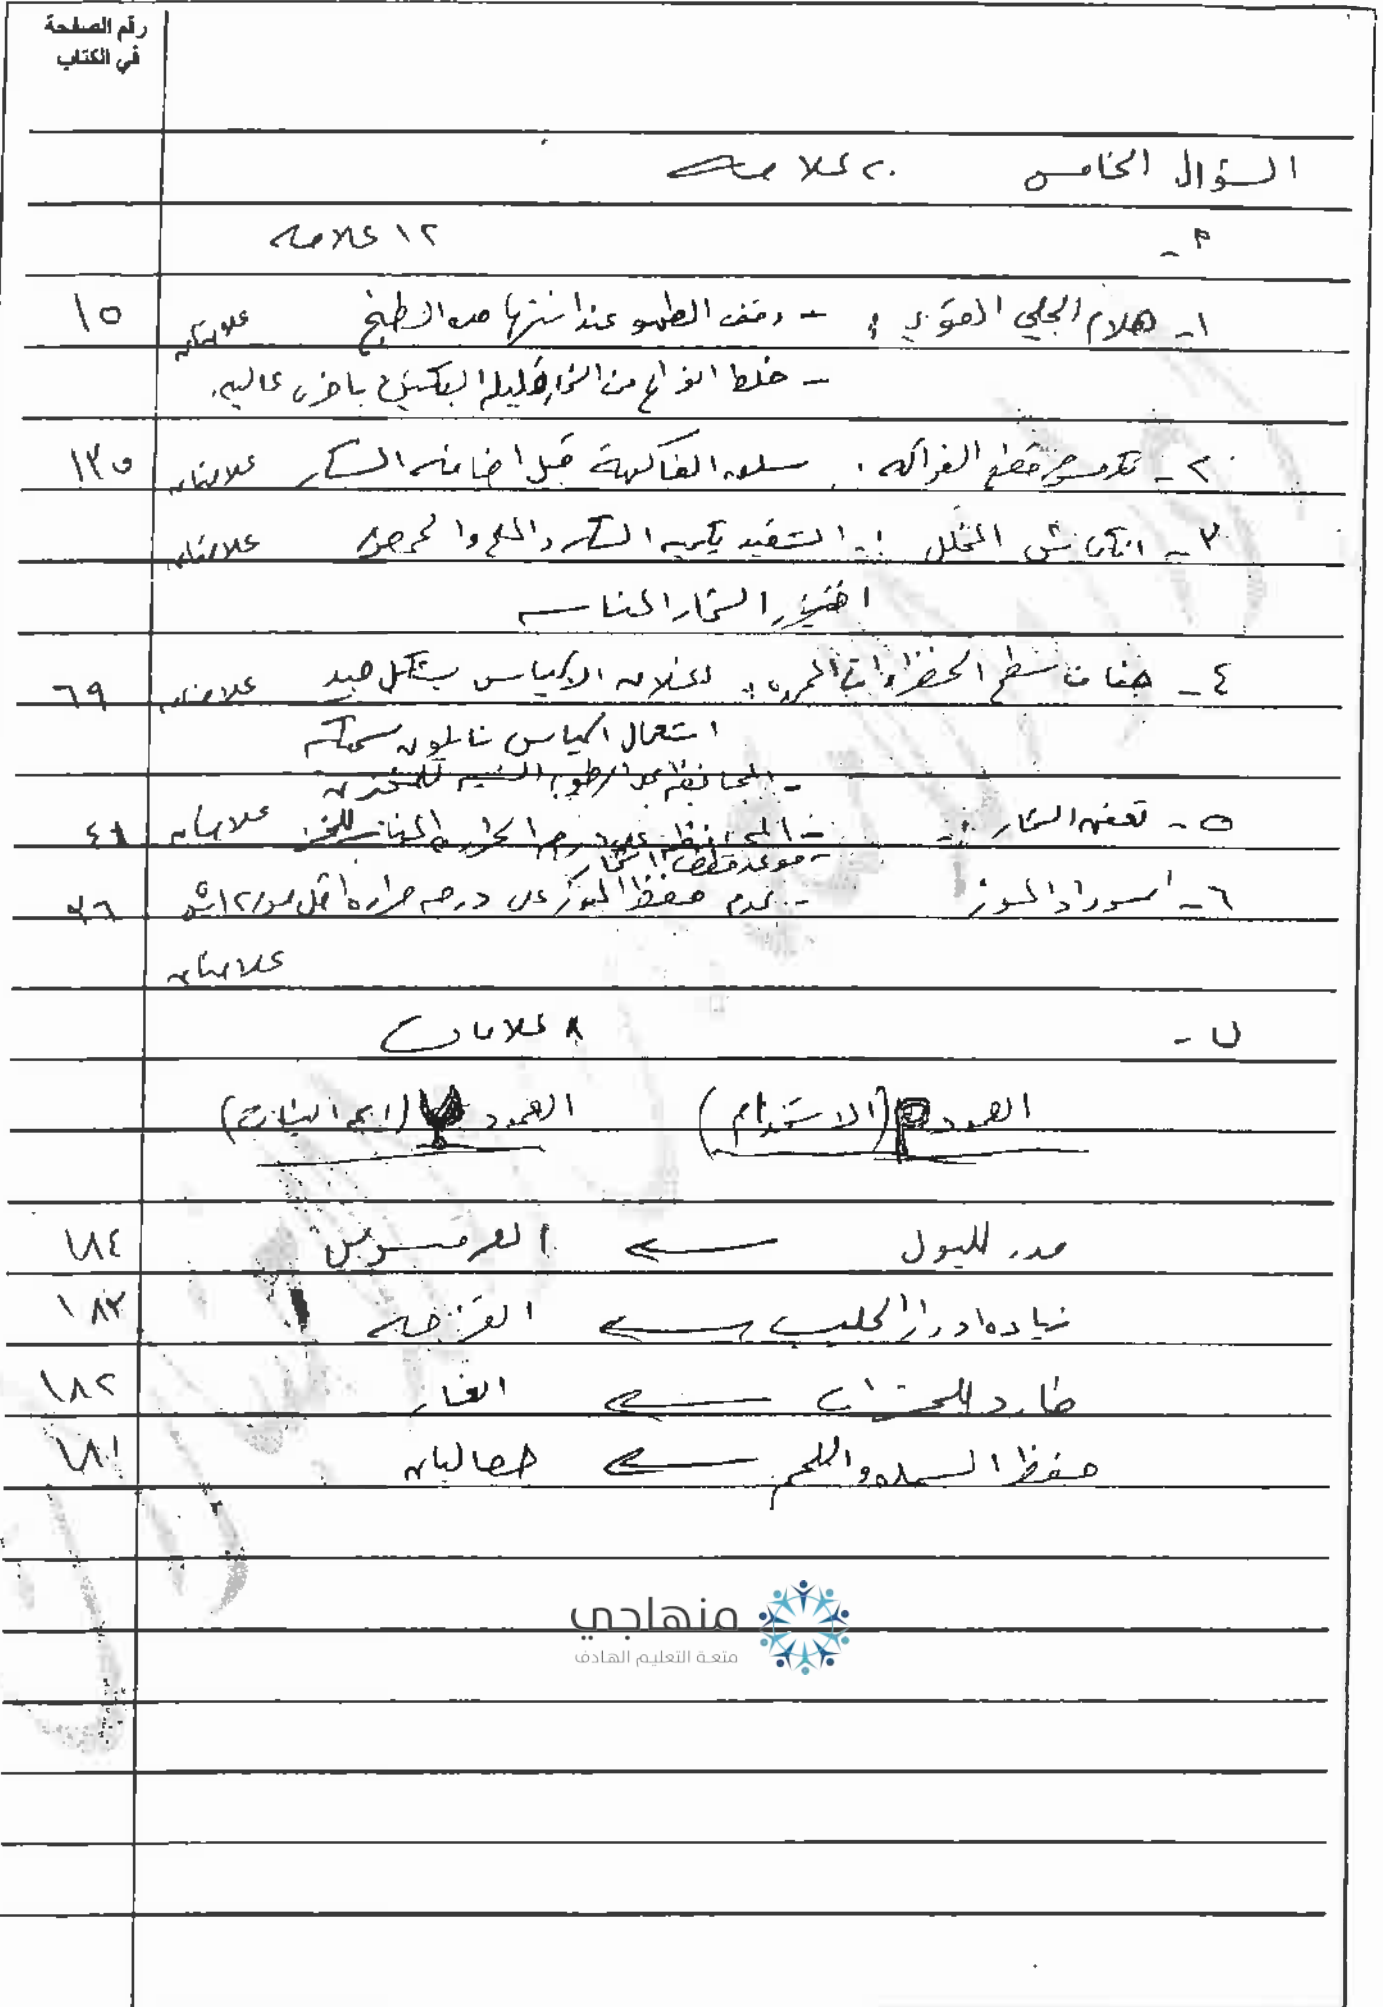 رقم الصفحة
في الكتاب
السؤال الخامس ٢٠ علامة
أ- ١٢ علامة
١- هلام الجلي القوي : - وقف الطهو عند انتهاء الطبخ علامتان ١٥
- خلط انواع من الثمار قليلة البكتين باخرى عالية.
٢- تكرمش قطع الفواكه : سلق الفاكهة قبل اضافة السكر علامتان ١٣٥
٣- انكماش المخلل :- التقيد بكمية السكر والملح والحموضة علامتان
اختيار الثمار المناسبة
٤- جفاف سطح الخضراوات المجمدة :. اغلاق الاكياس بشكل جيد علامتان ٦٩
استعمال اكياس نايلون سميكة
- المحافظة على الرطوبة النسبية للتخزين
٥- تعفن الثمار :- - المحافظة على درجة الحرارة المناسبة للتخزين علامتان ٤٨
- موعد قطف الثمار
٦- اسوداد الموز - عدم حفظ الموز على درجة حرارة اقل من ١٢ ٣٦
علامتان
ب- ٨ علامات
العمود أ (الاستخدام) العمود ب (اسم النبات)
مدر للبول ← العرقسوس ١٨٤
زيادة ادرار الحليب ← القزحة ١٨٣
طارد للحشرات ← الغار ١٨٢
حفظ السمك واللحم ← حصالبان ١٨١
منهاجي
متعة التعليم الهادف